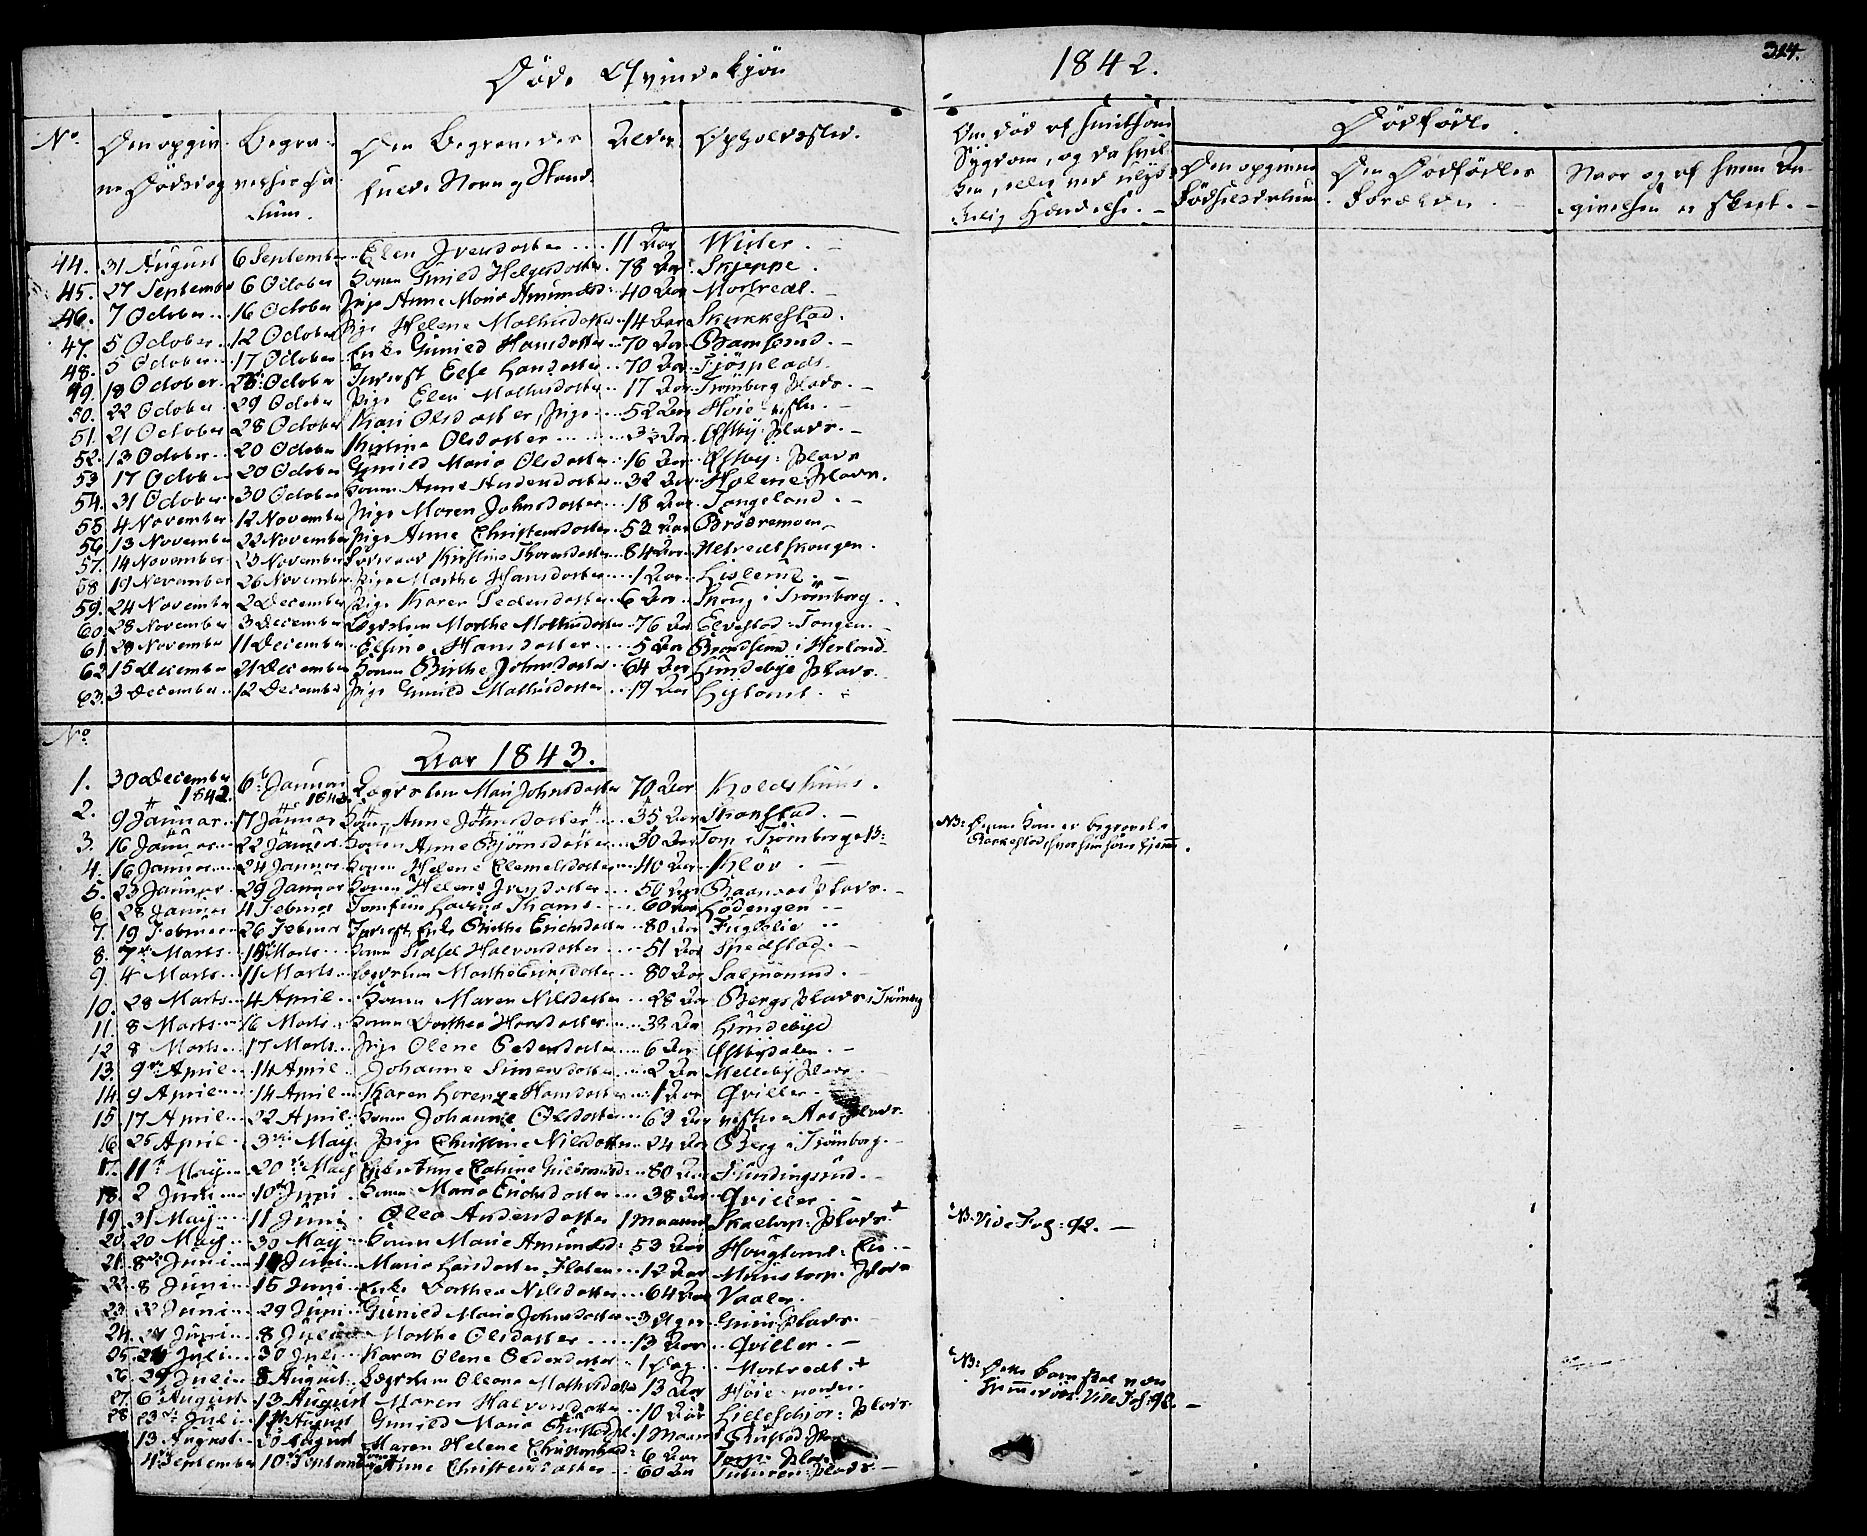 Døde Qvindekjön 1842. 324.
No. Den opgivne Dødsdag Begravelses Datum. Den Begravedes fulde Navn og Stand. Alder Opholdssted. Om død af smitsom Sygdom, og da hvilken, eller ved ulykkelig Hændelse. Dødfødte.
Den opgivne Fødselsdatum Den Dødfødtes Forældre Naar og af hvem Angivelsen er skeet.
44. 31 August 6 September Elen Iversdatter 11 Aar Wister.
45. 27 September 6 October Konen Gunild Helgesdatter 78 Aar Skjeppe.
46. 7 October 16 October Pige Anne Marie Amundsd: 40 Aar Mortvedt.
47. 5 October 12 October Pige Helene Mathisdatter 14 Aar Skukkestad.
48. 5 October 17 October Enke Gunild Hansdatter 70 Aar Bamsrud.
49. 18 October 25 October Inderst Else Hansdatter 70 Aar Fjøsplads
50. 22 October 29 October Pige Elen Mathisdatter 17 Aar Trömborg Plads.
51. 21 October 28 October Kari Olsdatter, Pige 52 Aar Høie vestre.
52. 13 October 20 October Kirstine Olsdatter 3½ Aar Østby Plads.
53 17 October 20 October Gunild Maria Olsdatter 16 Aar Østby Plads
54. 31 October 30 October Konen Anne Andersdatter 32 Aar Holene Plads.
55. 4 November 12 November Pige Maren Johnsdatter 18 Aar Tangeland.
56. 13 November 22 November Pige Anne Christensdatter 53 Aar Brödremoen
57. 14 November 23 November Kirstine Thoresdatter 84 Aar Hetvedtskougen.
58 19 November 26 November Pige Marthe Hansdatter 1 Aar Lislerud.
59. 24 November 2 December Pige Karen Pedersdatter 6 Aar Skoug i Trömborg.
60. 28 November 3 December Lægdslem Marthe Mathisdatter 76 Aar Elvestad Tangen.
61. 28 November 11 December Elsine Hansdatter 5 Aar Brandsrud i Herland
62 15 December 21 December Konen Birthe Johnsdatter 64 Aar Lundebye Plads.
63. 3 December 12 December Pige Gunild Mathisdatter 19 Aar Hylant.
No
Aar 1843.
1. 30 December 1842. 6te Januar 1843 Lægdslem Mari Johnsdatter 70 Aar Koldshuus.
2. 9 Januar 17 Januar Konen Anne Johnsdatter 35 Aar Skanstad.
3. 16 Januar 22 Januar Konen Anne Bjørnsdatter 30 Aar Torp i Trömborg NB: NB: Denne Kone er begravet i Rakkestad, hvor hun hører hjemme.
4. 16 Januar 24 Januar Konen Helene Clemetsdatter 40 Aar Kløv.
5. 23 Januar 29 Januar Konen Helene Iversdatter 50 Aar Raanaas Plads.
6. 28 Januar 4 Februar Jomfru Lovise Thams 60 Aar Hödengen
7. 19 Februar 26 Februar Inderst Enke Birthe Erichsdatter 80 Aar Fuglelie
8. 7de Marts 14 Marts Konen Sidsel Halvorsdatter 51 Aar Spedstad.
9. 4 Marts 11 Marts Lægdslem Marthe Erichsdatter 80 Aar Salmonrud.
10. 28 Marts 4 April Konen Maren Nilsdatter 28 Aar Bergs Plads i Trömborg
11. 8 Marts 16 Marts Konen Dorthea Hansdatter 38 Aar Lundebye
12 8 Marts 17 Marts Pige Olene Pedersdatter 6 Aar Østbydalen.
13. 9de April 14 April Johanne Simensdatter 2 Aar Melleby Plads
14. 9 April 14 April Karen Lorenze Hansdatter 1 Aar Qviller.
15 17 April 22 April Konen Johanne Olsdatter 63 Aar vestre Aas Plads.
16 25 April 3die May Pige Christine Nilsdatter 24 Aar Berg i Trömborg.
17. 11te May 20de May Enke Anne Catrine Gulbransd: 80 Aar Fundingsrud.
18. 2 Juni 10 Juni Konen Maria Erichsdatter 38 Aar Qviller
19. 31 May 11 Juni Olea Andersdatter 1 Maaned Skaltorp Plads + NB. Vide Fol: 92.
20. 20 May 30 May Konen Marie Amundsd: 53 Aar Hougland
21. 8de Juni 14 Juni Marie Larsdatter Floten 12 Aar Munstorp Plads
22. 8 Juni 15 Juni Enke Dorthea Nilsdatter 64 Aar Vaaler.
23. 22 Juni 29 Juni Gunild Maria Johnsdatter 3 Uger Plads.
24. Juni 8 Juli Marthe Olsdatter 13 Aar Qviller.
25. Juli 30 Juli Karen Olene Pedersdatter 1 Dag Mortvedt + NB: Dette Barn skal være Vide Fol: 92.
26 29 Juli 8 August Lægdslem Oleane Mathisdatter 13 Aar Høie nordre
27. 6 August 13 August Maren Halvorsdatter 10 Aar Plads
28 23 Juli 1 August Gunild Maria 1 Maaned Rustad Plads
13 August 20 August Maren Helene Christophersd: 6 Aar Torp Plads
4 September 10 September Konen Anne Christensdatter 60 Aar Plads